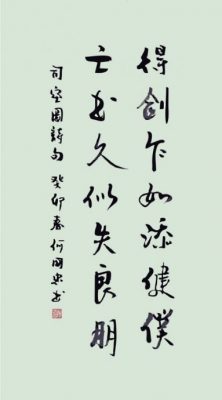 得劍乍如添健僕
亡書久似失良朋
司空圖詩句 癸卯春何忠書